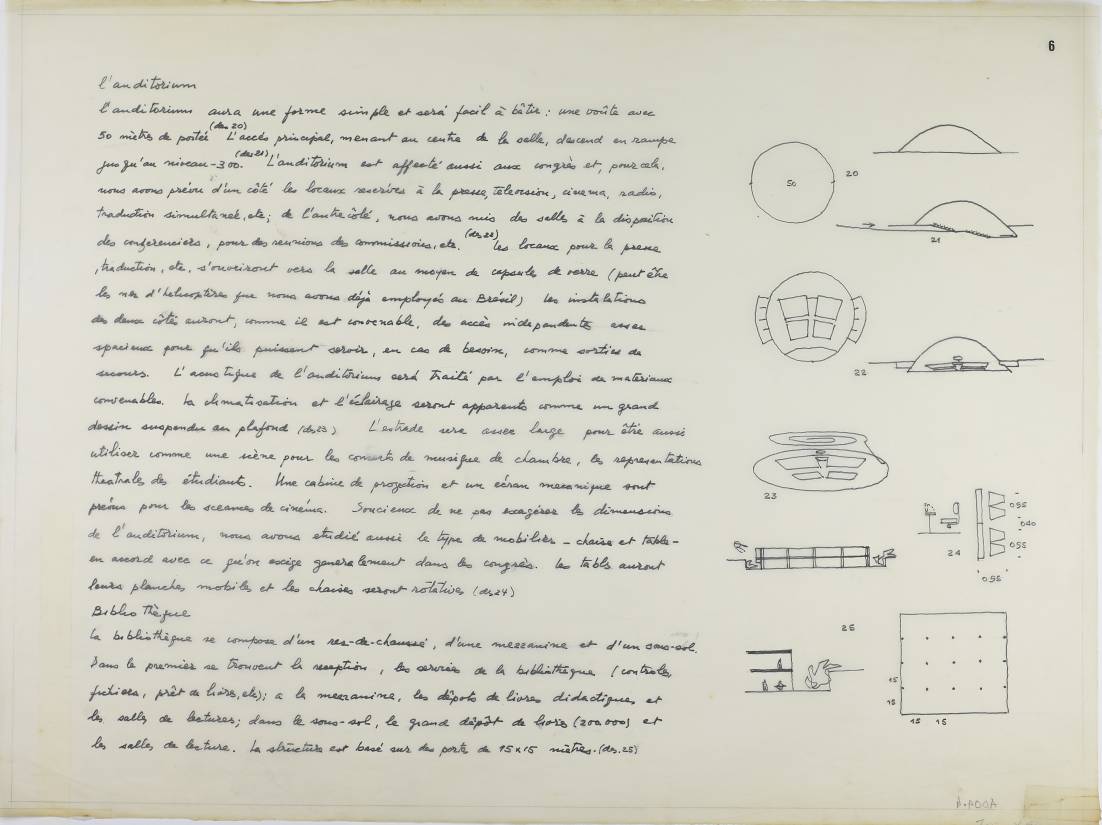 6
l'auditorium
l'auditorium aura une forme simple et será facil à bâtir : une voûte avec
50 mètres de portée (des.20) L'accès principal, menant au centre de la salle, descend en rampe
jusqu'au niveau -300. (des21) L'auditorium est affecté aussi aux congrès et, pour cela,
nous avons prévu d'un côté les locaux reservées à la presse, television, cinema, radio,
traduction simultaneé, etc; de l'autre côté, nous avons mis des salles à la disposition
des conferenciers, pour des reunions des commissions, etc. (des22) Les locaux pour la presse
, traduction, etc, s'ouvriront vers la salle au moyen de capsules de verre (peut être
les nez d'helicoptères que nous avons déjà employés au Brésil) Les instalations
des deux côtés auront, comme il est convenable, des accès independents assez
spacieux pour qu'ils puissent servir, en cas de besoin, comme sorties de
secours. L'acoustique de l'auditorium será traité par l'emploi de materiaux
convenables. La climatisation et l'éclairage seront apparents comme un grand
dessin suspendu au plafond (des23) L'estrade sera assez large pour être aussi
utiliser comme une scène pour les concerts de musique de chambre, les representations
theatrales des étudiants. Une cabine de projetion et un écran mecanique sont
prévus pour les sceances de cinéma. Soucieux de ne pas exagérer les dimensions
de l'auditorium, nous avons etudié aussi le type de mobilier - chaise et table -
en accord avec ce qu'on exige generalement dans les congrès. Les tabls auront
leurs planches mobiles et les chaises seront rotatives (des24)
Bibliothèque
La bibliothèque se compose d'un rez-de-chaussé, d'une mezzanine et d'un sous-sol.
Dans le premier se trouvent la reception, les services de la bibliothèque (controle,
fichiers, prêt de livres, etc); a la mezzanine, les dépots de livres didactiques et
les salles de lectures; dans le sous-sol, le grand dépôt de livres (200000) et
les salles de lecture. La structure est basé sur des ports de 15x15 mètres. (des.25)
50
20
21
22
23
24
0.55
0.40
0.55
0.55
25
15
15
15 15